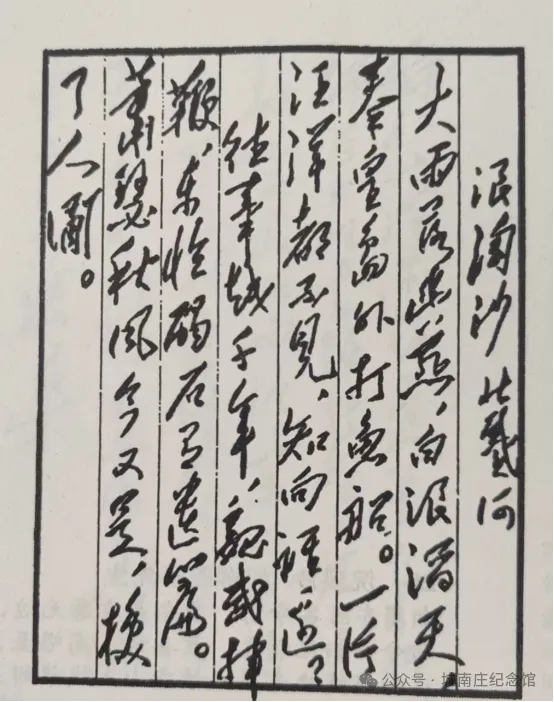 浪淘沙 北戴河
大雨落幽燕，白浪滔天
秦皇岛外打鱼船。一片
汪洋都不见，知向谁边？
往事越千年，魏武挥
鞭，东临碣石有遗篇。
萧瑟秋风今又是 换
了人间。
公众号·城南庄纪念馆